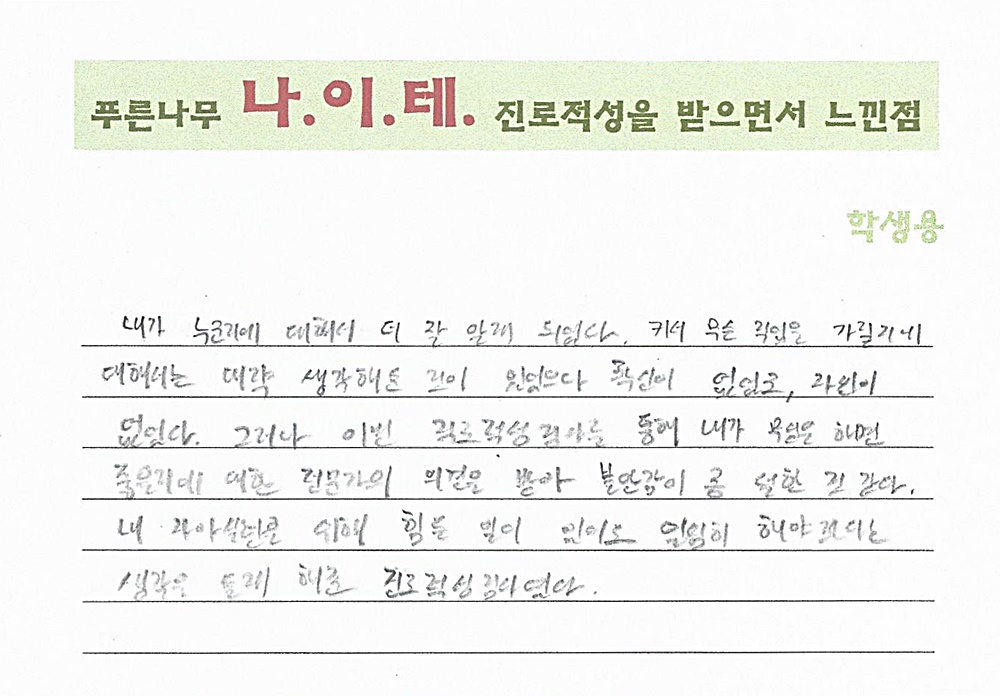 푸른나무 나.이.테. 진로적성을 받으면서 느낀점
학생용
내가 누군지에 대해서 더 잘 알게 되었다. 커서 무슨 직업을 가질지에
대해서는 대략 생각해둔 것이 있었으나 확신이 없었고, 자신이
없었다. 그러나 이번 진로적성검사를 통해 내가 무엇을 하면
좋을지에 대한 전문가의 의견을 받아 불안감이 좀 덜한 것 같다.
내 자아실현을 위해 힘든 일이 있어도 열심히 해야겠다는
생각을 들게 해준 진로적성검사였다.